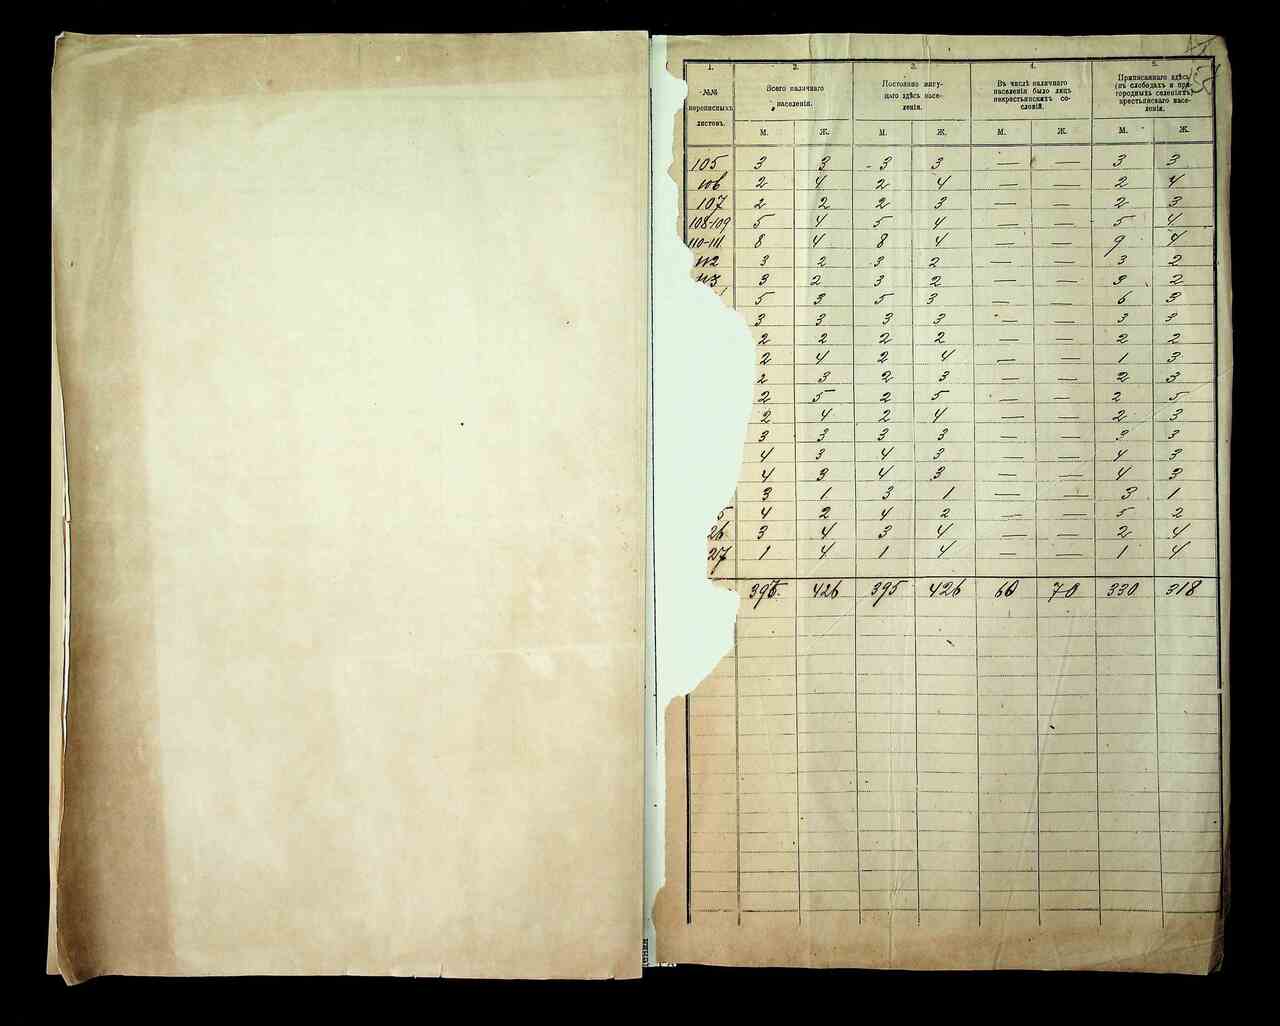 1. 2. 3. 4. 5.
№№ переписныхъ листовъ. Всего наличнаго населенія. Постоянно живущаго здѣсь населенія. Въ числѣ наличнаго населенія было лицъ некрестьянскихъ сословій. Приписаннаго здѣсь (въ слободахъ и пригородныхъ селеніяхъ) крестьянскаго населенія.
М. Ж. М. Ж. М. Ж. М. Ж.
105 3 3 3 3 — — 3 3
106 2 4 2 4 — — 2 4
107 2 2 2 3 — — 2 3
108-109 5 4 5 4 — — 5 4
110-111 8 4 8 4 — — 9 4
112 3 2 3 2 — — 3 2
113 3 2 3 2 — — 3 2
5 3 5 3 — — 6 3
3 3 3 3 — — 3 3
2 2 2 2 — — 2 2
2 4 2 4 — — 1 3
2 3 2 3 — — 2 3
2 5 2 5 — — 2 5
2 4 2 4 — — 2 3
3 3 3 3 — — 3 3
4 3 4 3 — — 4 3
4 3 4 3 — — 4 3
3 1 3 1 — — 3 1
5 4 2 4 2 — — 5 2
26 3 4 3 4 — — 2 4
27 1 4 1 4 — — 1 4
395 426 395 426 60 70 330 318